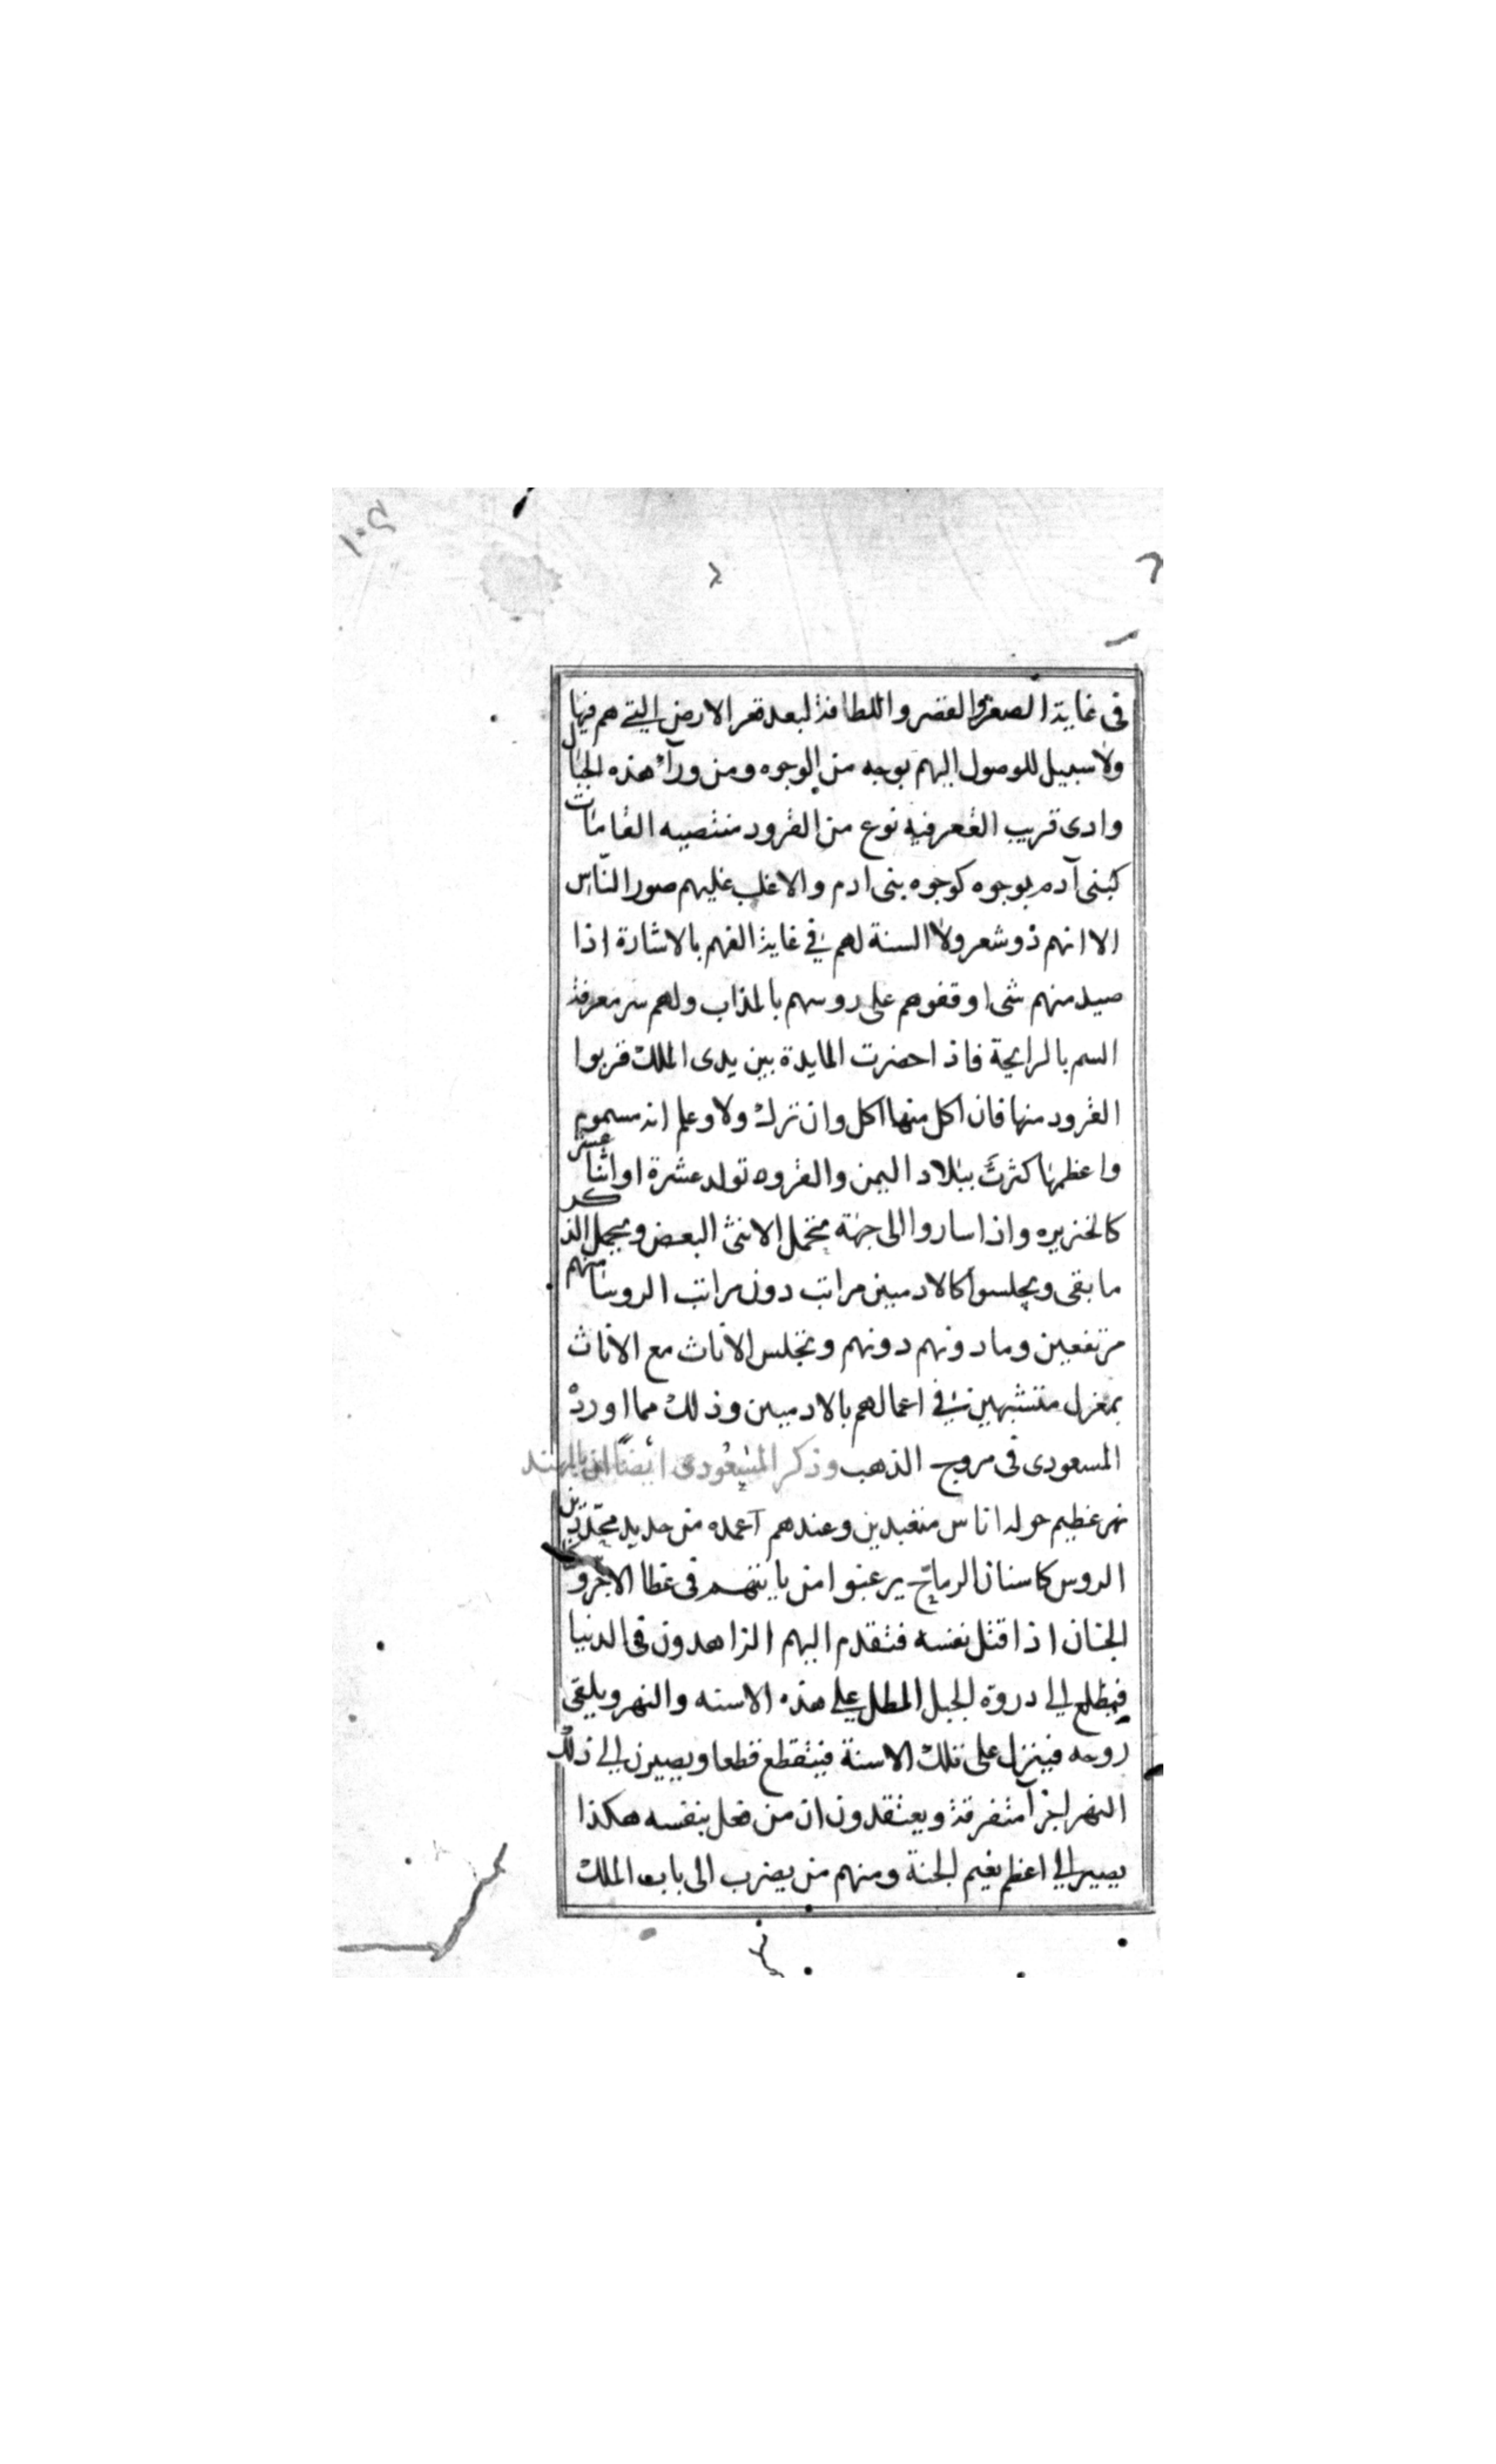 في غاية الصغر والقصر واللطافة لبعد قعر الارض التي هم فيها
ولا سبيل للوصول اليهم بوجه من الوجوه ومن ورآء هذه الجبال
وادى قريب القعر فيه نوع من القرود منتصبه القامات
كبنى آدم بوجوه كوجوه بنى ادم والاغلب عليهم صور النّاس
الا انهم ذو شعر ولا السنة لهم في غاية الفهم بالاشارة اذا
صيد منهم شى اوقفوهم على روسهم بالمذاب ولهم سر معرفة
السم بالرايحة فاذا حضرت المايدة بين يدى الملك قربوا
القرود منها فان اكل منها اكل وان ترك ولا وعلم انه مسموم
واعظمها كثرت ببلاد اليمن والقروه تولد عشرة او اثنا عشر
كالخنزيره واذا ساروا الى جهة تحمل الانثى البعض ويحمل الذكر
ما بقى ويجلسوا كالادميين مراتب دون مراتب الروسا منهم
مرتفعين وما دونهم دونهم وتجلس الاناث مع الاناث
بمعزل متشبهين في اعمالهم بالادميين وذلك مما اورده
المسعودى فى مروج الذهب وذكر المسعودى ايضاً ان بالهند
نهر عظيم حوله اناس متعبدين وعندهم آعمده من حديد محدّدين
الروس كاسنان الرماح يرغبوا من ياتيهم فى عطا الاجر و
الجنان اذا قتل نفسه فتقدم اليهم الزاهدون فى الدنيا
فيطلع الى دروة الجبل المطل على هذه الاسنه والنهر ويلقى
روحه فينزل على تلك الاسنة فيتقطع قطعا ويصيرن الى ذلك
النهر اجزآ متفرقة ويعتقدون ان من فعل بنفسه هكذا
يصير الى اعظم نعيم الجنة ومنهم من يضرب الى باب الملك